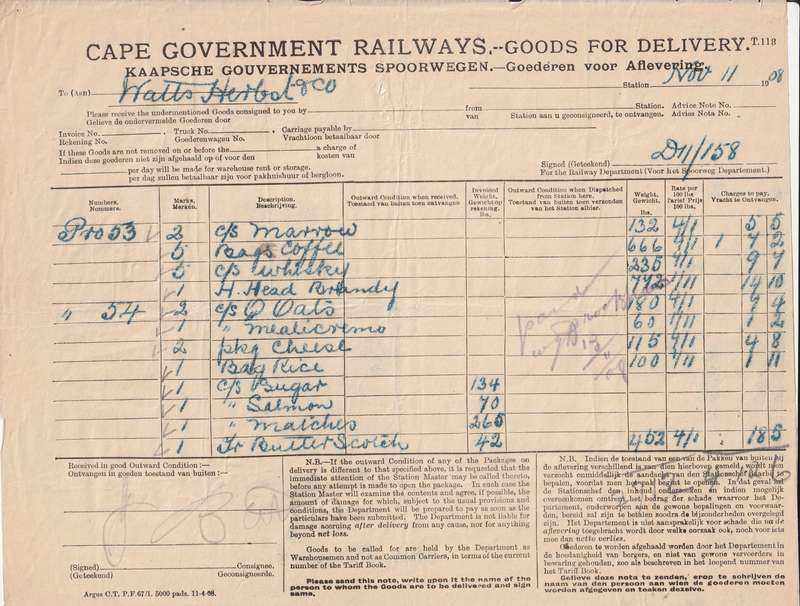 CAPE GOVERNMENT RAILWAYS.--GOODS FOR DELIVERY. T.113
KAAPSCHE GOUVERNEMENTS SPOORWEGEN.—Goederen voor Aflevering.
To (Aan) Watts Herbst & Co Station Nov 11 1908
Please receive the undermentioned Goods consigned to you by from Station. Advice Note No.
Gelieve de ondervermelde Goederen door van Station aan u geconsigneerd, te ontvangen. Advies Nota No.
Invoice No. Truck No. Carriage payable by
Rekening No. Goederenwagen No. Vrachtloon betaalbaar door
If these Goods are not removed on or before the a charge of
Indien deze goederen niet zijn afgehaald op of voor den kosten van
per day will be made for warehouse rent or storage.
per dag zullen betaalbaar zijn voor pakhuishuur of bergloon.
Signed (Geteekend) D11/158
For the Railway Department (Voor het Spoorweg Departement.)
Numbers. Nummers. Marks. Merken. Description. Beschrijving. Outward Condition when received. Toestand van buiten toen ontvangen Invoiced Weight. Gewicht op rekening. lbs. Outward Condition when Dispatched from Station here. Toestand van buiten toen verzonden van het Station alhier. Weight. Gewicht. lbs. Rate per 100 lbs Tarief Prijs 100 lbs. Charges to pay. Vracht te Ontvangen.
Pro 53 2 c/s Marrow 132 4/1 5 5
5 Bags Coffee 666 4/1 1 7 2
5 c/s Whisky 235 4/1 9 7
1 H. Head Brandy 772 1/11 14 10
" 54 2 c/s Q Oats 180 4/1 7 4
1 " Mealiecremo 60 1/11 1 2
2 pkg Cheese 115 4/1 4 8
1 Bag Rice 100 1/11 1 11
1 c/s Sugar 134
1 " Salmon 70
1 " Matches 265
1 Tr Butter Scotch 42 452 4/1 18 5
Received in good Outward Condition:—
Ontvangen in goeden toestand van buiten:—
(Signed) Consignee.
(Geteekend) Geconsigneerde.
Argus C.T. P.F.67/1. 5000 pads. 11-4-08.
N.B.—If the outward Condition of any of the Packages on
delivery is different to that specified above, it is requested that the
immediate attention of the Station Master may be called thereto,
before any attempt is made to open the package. In such case the
Station Master will examine the contents and agree, if possible, the
amount of damage for which, subject to the usual provisions and
conditions, the Department will be prepared to pay as soon as the
particulars have been submitted. The Department is not liable for
damage accruing after delivery from any cause, nor for anything
beyond net loss.
Goods to be called for are held by the Department as
Warehousemen and not as Common Carriers, in terms of the current
number of the Tariff Book.
Please send this note, write upon it the name of the
person to whom the Goods are to be delivered and sign
same.
N.B. Indien de toestand van een van de Pakken van buiten bij
de aflevering verschillend is van dien hierboven gemeld, wordt men
verzocht onmiddellijk de aandacht van den Stationschef daarbij te
bepalen, voordat men het pak begint te openen. In dat geval zal
de Stationschef den inhoud onderzoeken en indien mogelijk
overeenkomen omtrent het bedrag der schade waarvoor het De-
partement, onderworpen aan de gewone bepalingen en voorwaar-
den, bereid zal zijn te betalen zoodra de bijzonderheden overgelegd
zijn. Het Departement is niet aansprakelijk voor schade die na de
aflevering toegebracht wordt door welke oorzaak ook, noch voor iets
meer dan netto verlies.
Goederen te worden afgehaald worden door het Departement in
de hoedanigheid van bergers, en niet van gewone vervoerders in
bewaring gehouden, zoo als beschreven in het loopend nummer van
het Tarief Boek.
Gelieve deze nota te zenden, er op te schrijven de
naam van den persoon aan wien de goederen moeten
worden afgegeven en teeken dezelve.